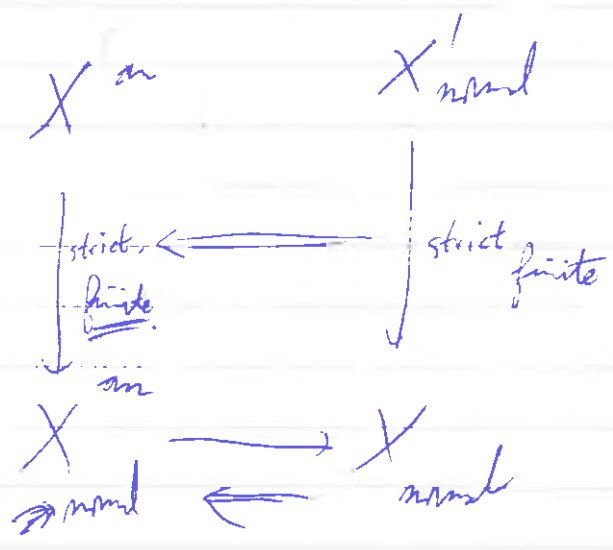 X an X' normal
strict strict
finite finite
an
X X
normal normal